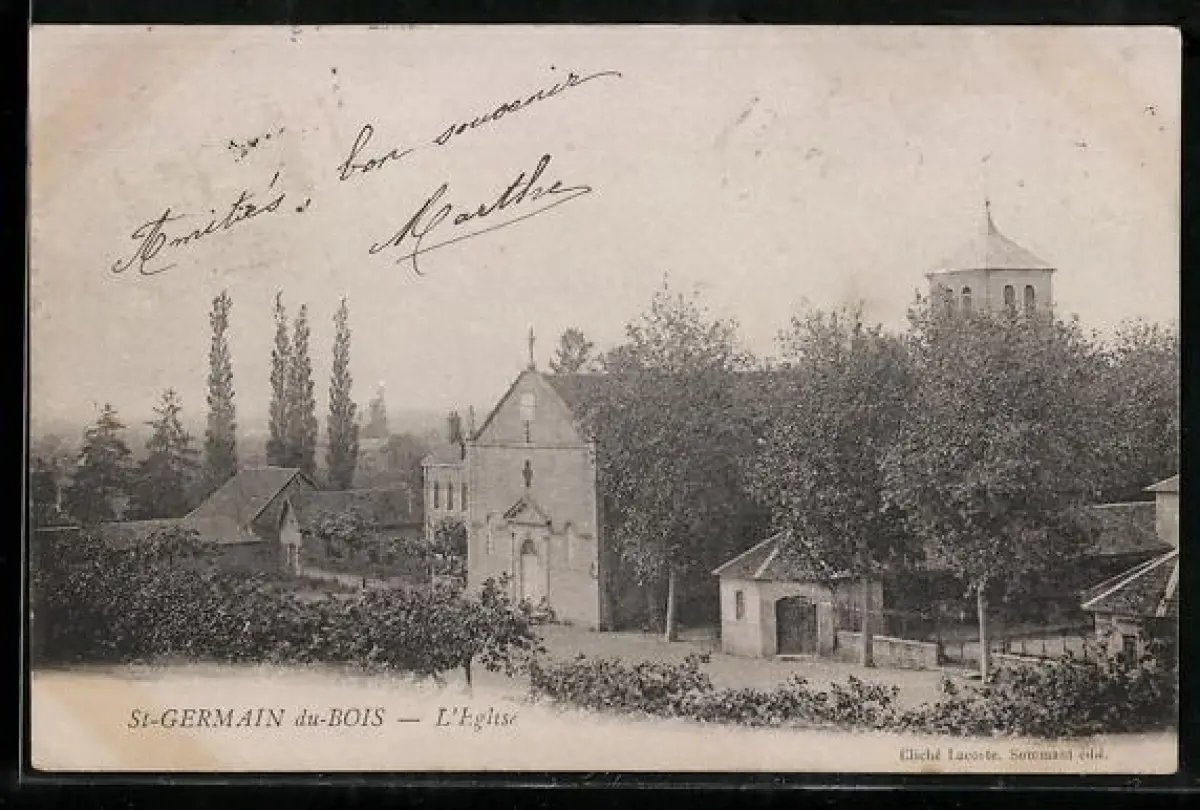 Amitiés, bon souvenir
Marthe
St-GERMAIN du-BOIS — L'Eglise
Cliché Lacoste. Sommant édit.